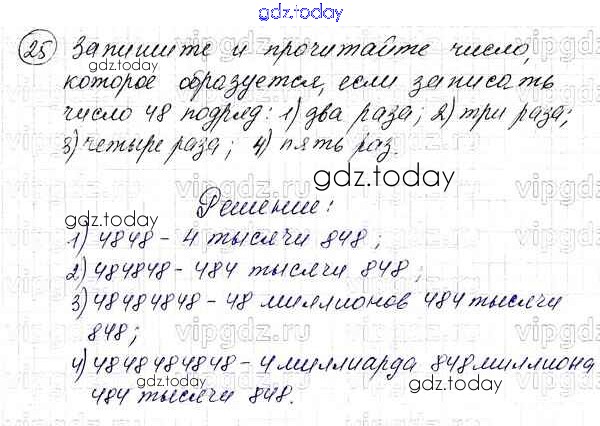 gdz.today
25 Запишите и прочитайте число,
gdz.today
которое образуется, если записать
число 48 подряд: 1) два раза; 2) три раза;
3) четыре раза; 4) пять раз.
gdz.today
Решение:
gdz.today
1) 4848 - 4 тысячи 848;
2) 484848 - 484 тысячи 848;
3) 48484848 - 48 миллионов 484 тысячи
848;
vipgdz.ru
4) 4848484848 - 4 миллиарда 848 миллиона
gdz.today gdz.today
484 тысячи 848.